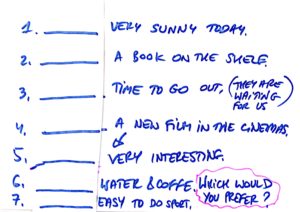 1. ________ VERY SUNNY TODAY.
2. ________ A BOOK ON THE SHELF.
3. ________ TIME TO GO OUT, (THEY ARE WAITING FOR US)
4. ________ A NEW FILM IN THE CINEMAS.
5. ________ VERY INTERESTING.
6. ________ WATER & COFFE. WHICH WOULD YOU PREFER?
7. ________ EASY TO DO SPORT.